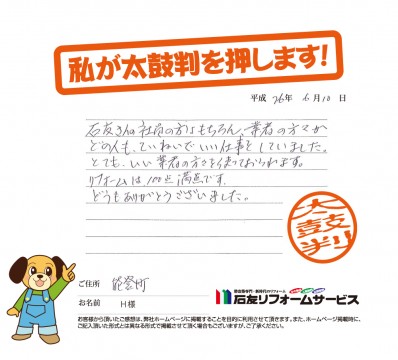 私が太鼓判を押します!
平成 26年 6月10日
石友さんの社員の方はもちろん、業者の方々が
どの人も、ていねいでいい仕事をしていました。
とても、いい業者の方々を使っておられます。
リフォームは100点満点です。
どうもありがとうございました。
太鼓判
ご住所 能登町
お名前 H様
石友リフォームサービス
お客様から頂いたご感想は、弊社ホームページに掲載することを目的に利用させて頂きます。また、ホームページ掲載時に、
ご記入頂いた形式とは異なる形式で掲載させて頂く場合もございますが、ご了承ください。